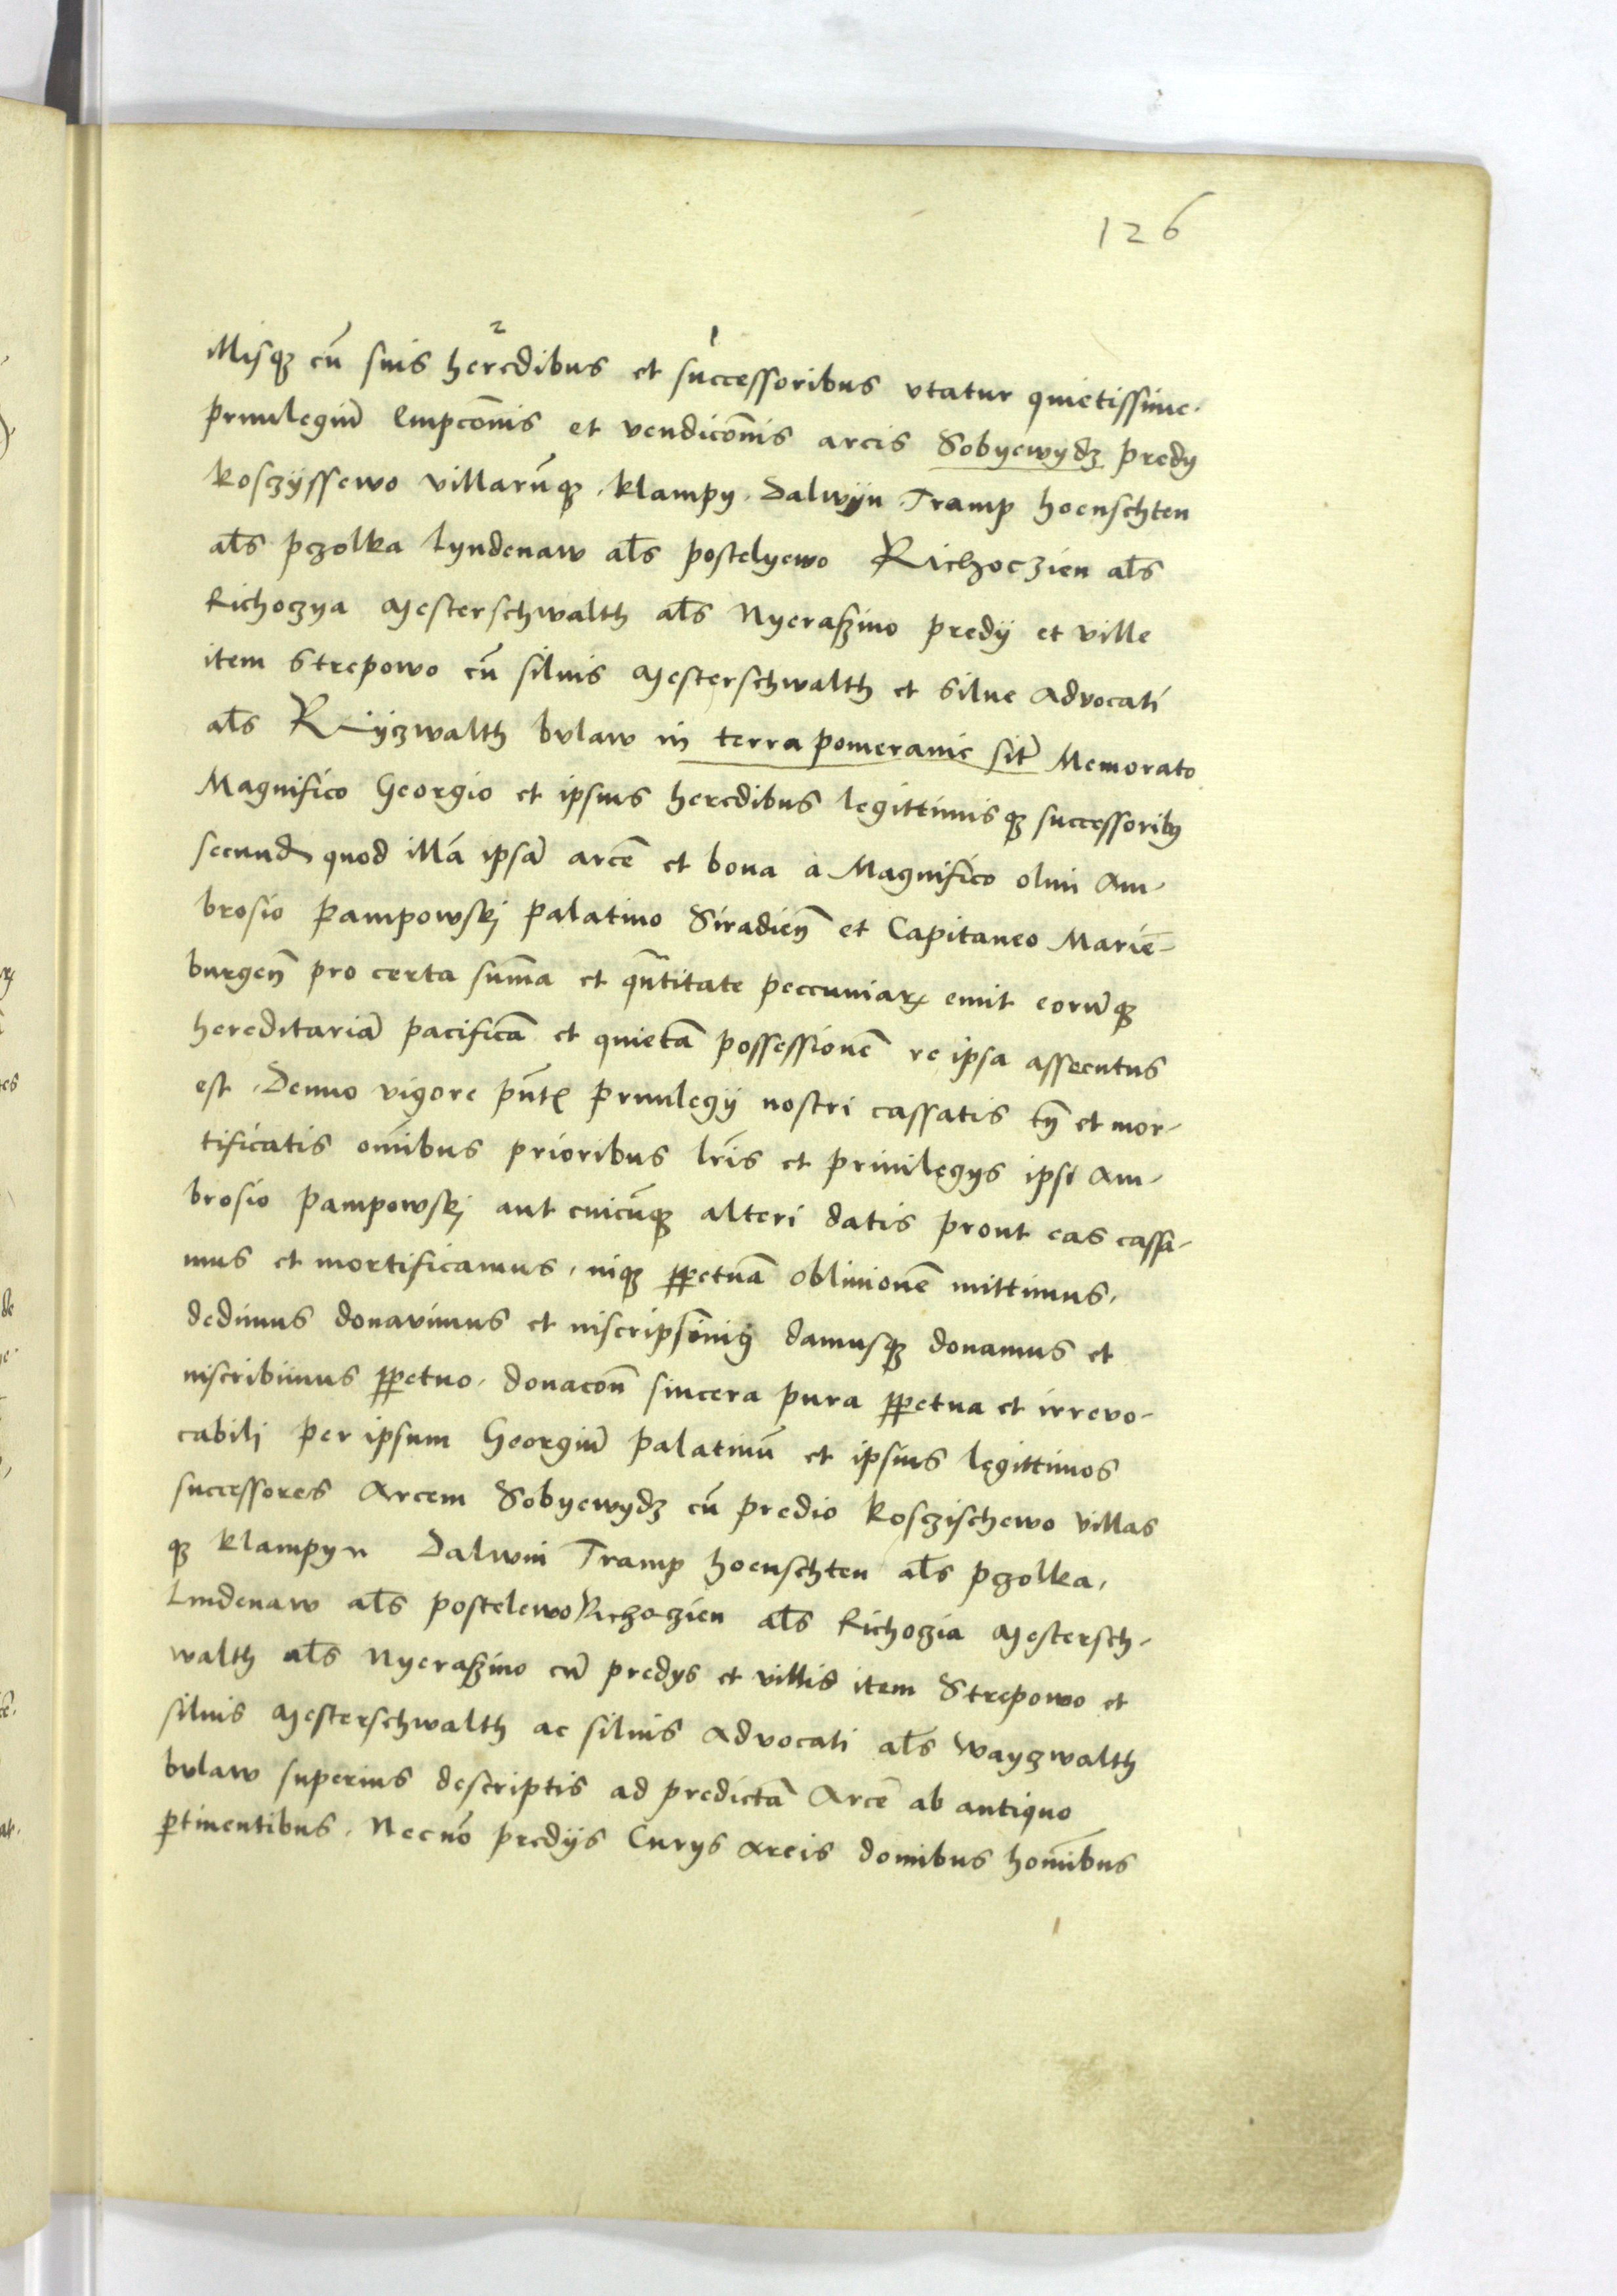 126
2 1
illisqꝫ cū suis heredibus et successoribus vtatur quietissime.
priuilegiū Empcōnis et vendicōnis arcis Sobyewydz predy
koszyssewo villarūqꝫ. klampy. Dalwyn Tramp hoenschten
als pczolka Lyndenaw als postelyewo Richoczien als
Richoczya Mesterschwalth als Nyeraszino predij et ville
item Strepowo cū siluis Mesterschwalth et silue Advocati
als Rijczwalth bvlaw in terra pomeranie sit̄ Memorato
Magnifico Georgio et ipsius heredibus legittimisqꝫ successoribꝫ
secund quod illā ipsā arcē et bona a Magnifico olim Am-
brosio Pampowskj Palatino Siradieñ et Capitaneo Marie-
burgeñ pro certa sum̄a et qn̄titate peccuniaꝝ emit eorūqꝫ
hereditariā pacificā et quietā possessionē re ipsa assecutus
est. Denuo vigore pn̄tꝭ priuilegij nostri cassatis tn̄ et mor-
tificatis om̄ibus prioribus lrīs et priuilegys ipsi Am-
brosio Pampowskj aut cuicūqꝫ alteri datis prout eas cassa-
mus et mortificamus, inqꝫ ꝑpetuā obliuionē mittimus.
dedimus donavimus et inscripsimꝰ damusqꝫ donamus et
inscribimus ꝑpetuo. donacōn̄ sincera pura ꝑpetua et irrevo-
cabilj per ipsum Georgiū Palatinū et ipsius legittimos
successores Arcem Sobyewydz cū predio koszischewo villas
qꝫ klampyn Dalwin Tramp hoenschten als pczolka,
Lindenaw als postelewo Richoczien als Richoczia Mestersch-
walth als Nyeraszino cū predys et villis item Strepowo et
siluis Mesterschwalth ac siluis Advocati als Wayczwalth
bvlaw superius descriptis ad predictā Arcē ab antiquo
ꝑtinentibus. Necnō predijs Curys areis domibus hom̄ibus